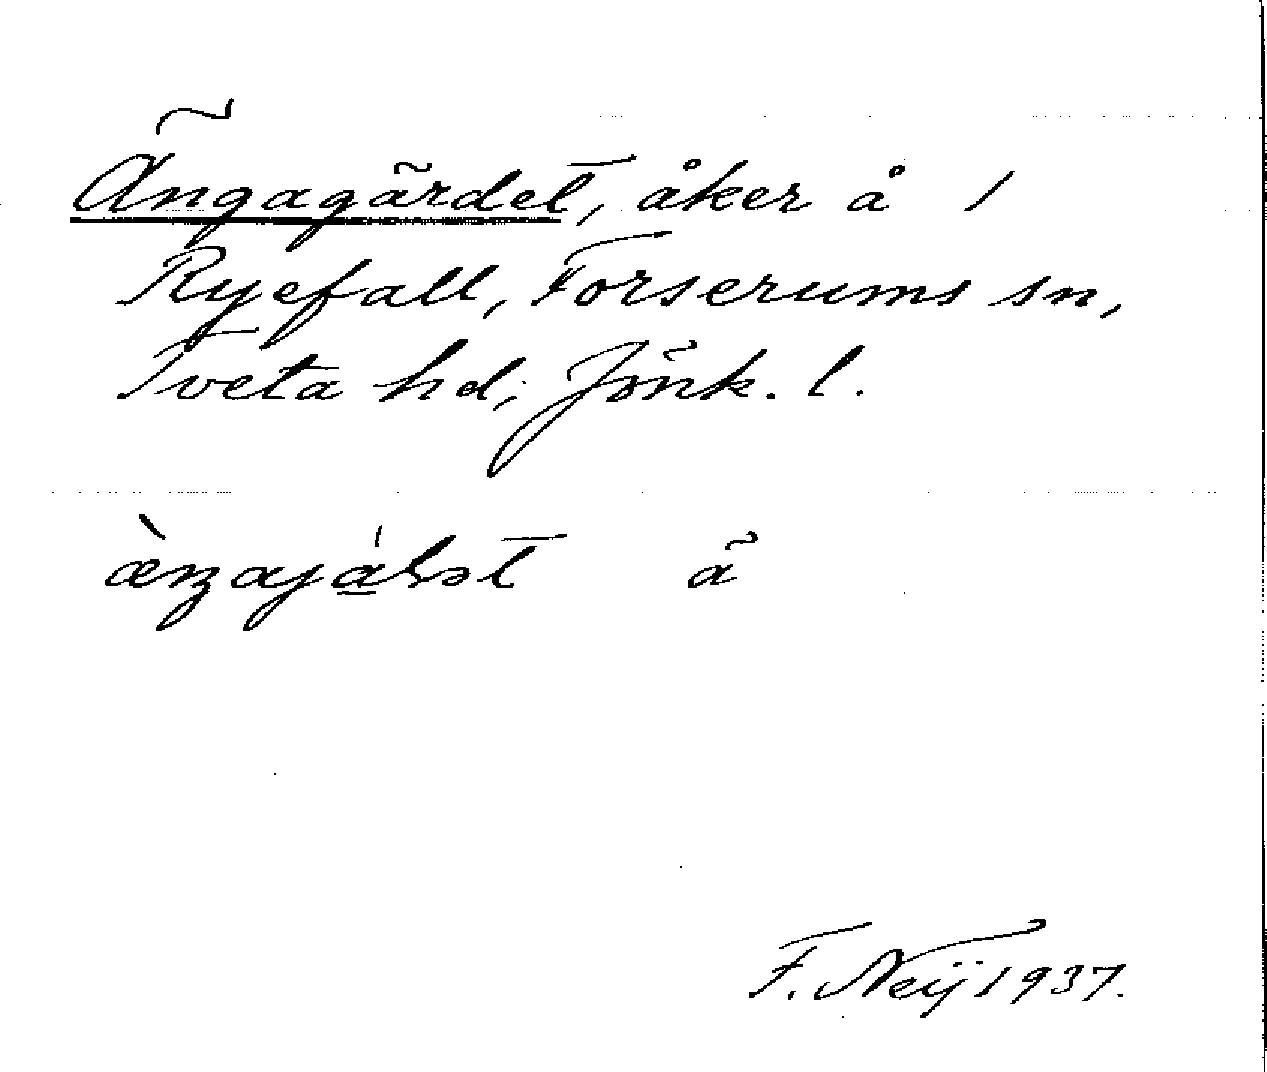 Ängagärdet, åker å 1
Ryefall, Forserums sn,
Tveta hd, Jönk. l.
ä̀ŋajáƚət ä
F. Neij 1937.